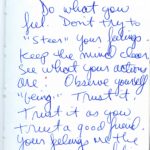 Do what you
feel. Don't try to
"steer" your feelings.
Keep the mind clear.
See what your actions
are: Observe yourself
"being." Trust it.
Trust it as you
trust a good friend.
Your feelings are the